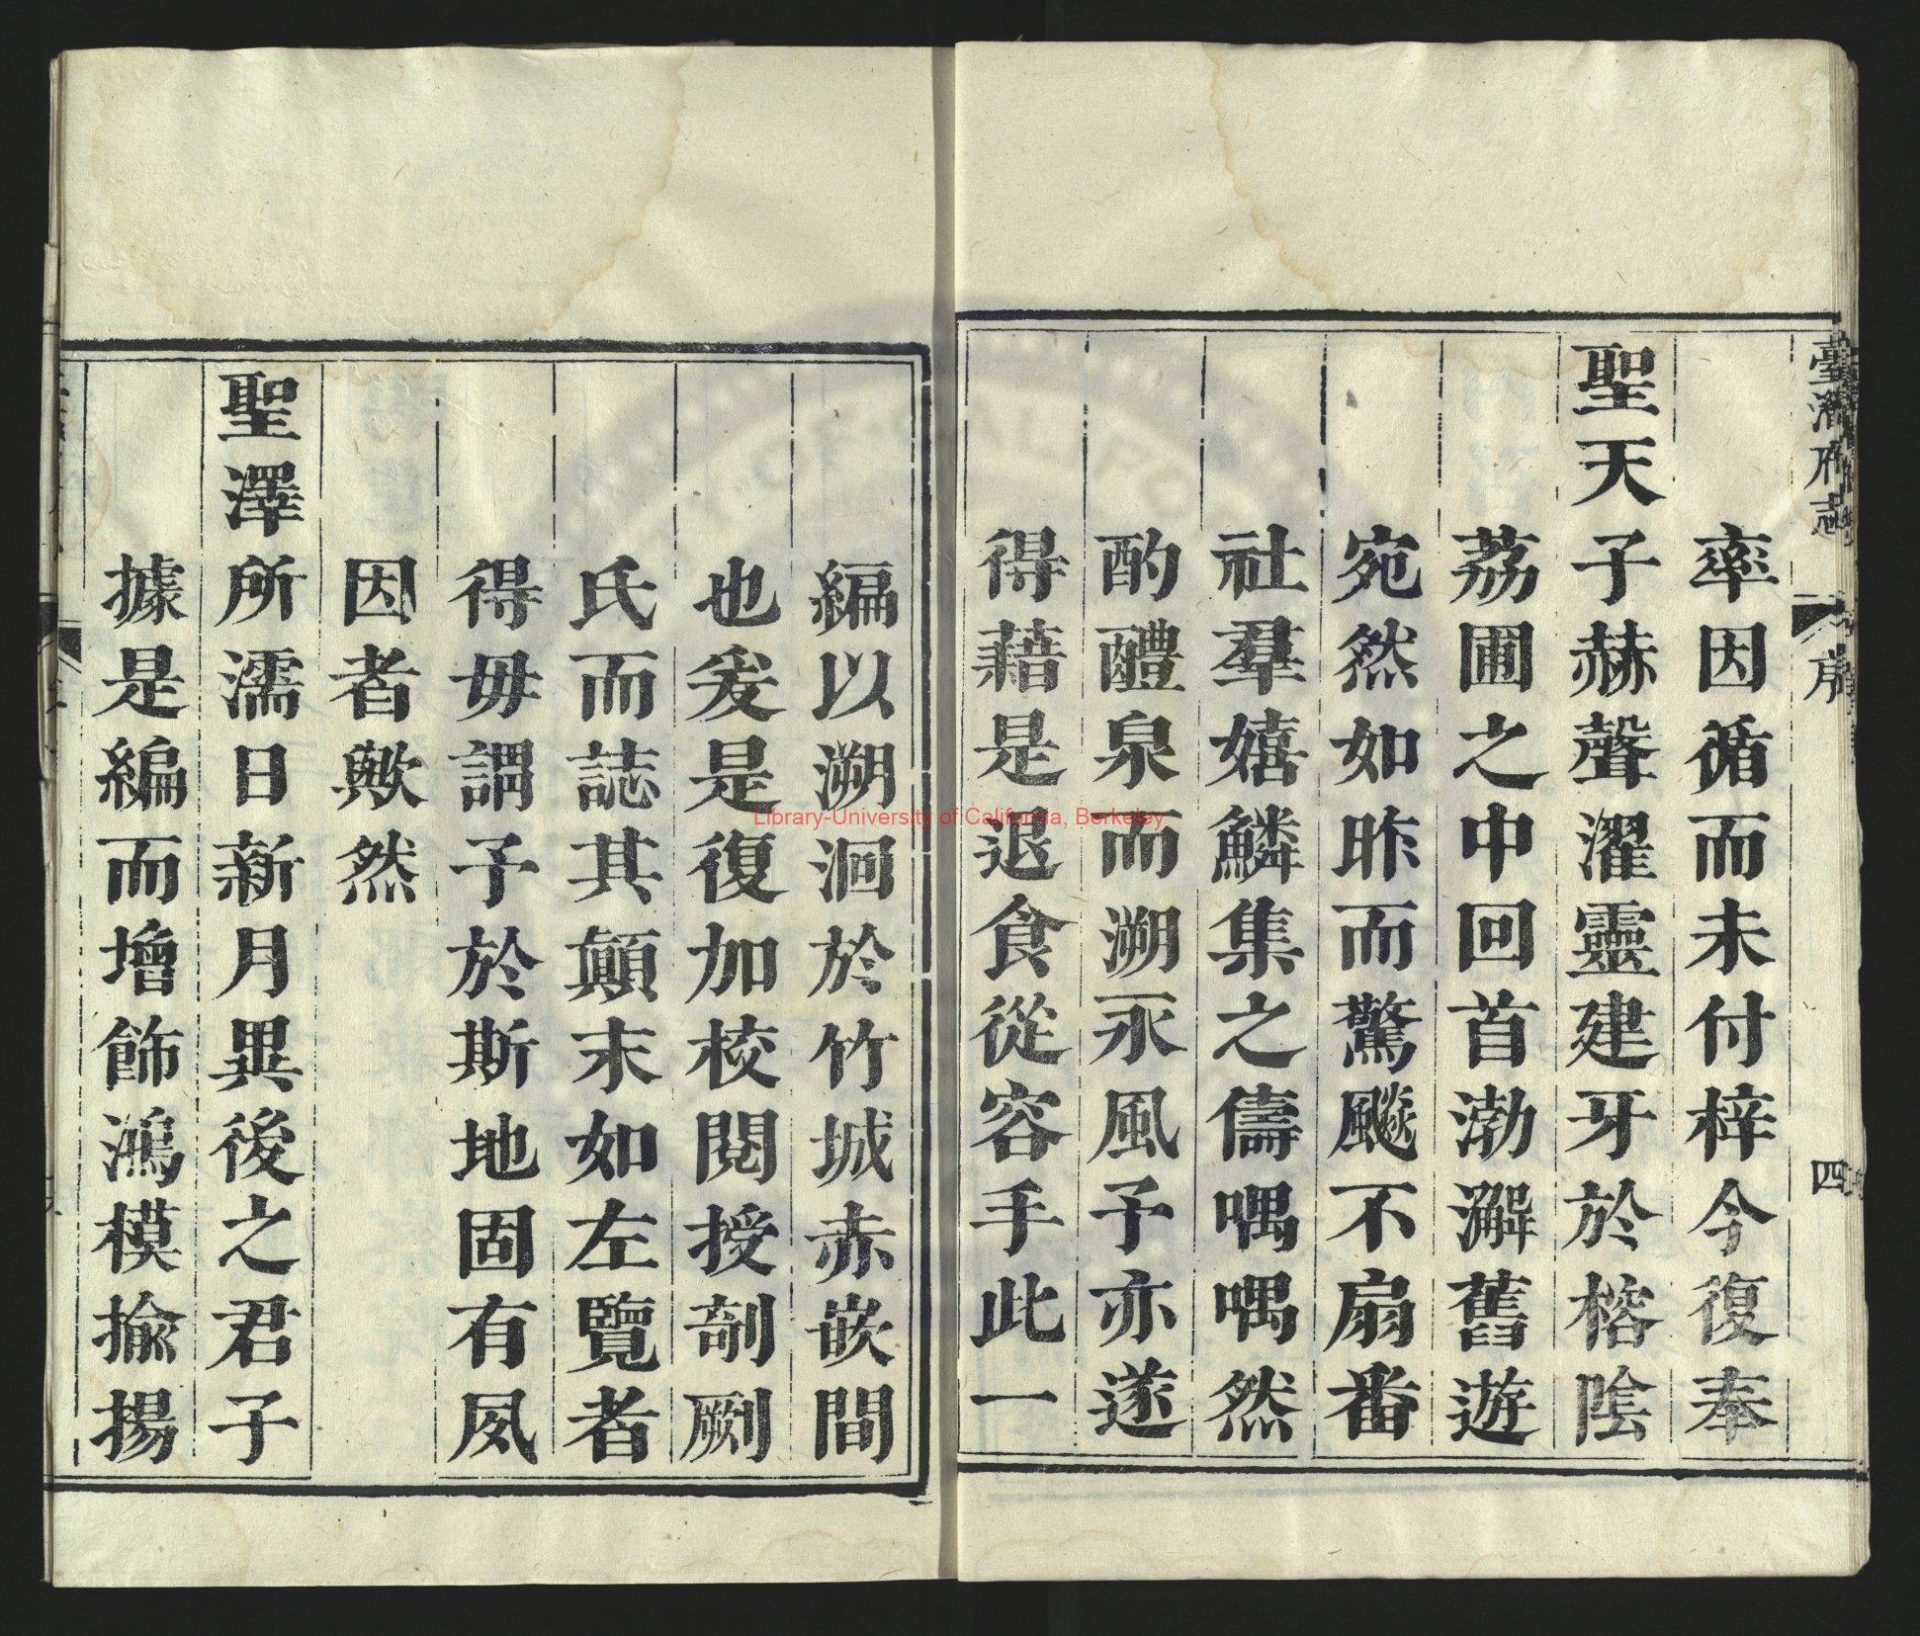 臺灣府志 序 四
率因循而未付梓今復奉
聖天子赫聲濯靈建牙於榕陰
荔圃之中回首渤澥舊遊
宛然如昨而驚颷不扇番
社羣嬉鱗集之儔喁喁然
酌醴泉而溯永風予亦遂
得藉是退食從容手此一
編以溯洄於竹城赤嵌間
也爰是復加校閱授剞劂
氏而誌其顛末如左覽者
得毋謂予於斯地固有夙
因者歟然
聖澤所濡日新月異後之君子
據是編而增飾鴻模揄揚
Library-University of California, Berkeley